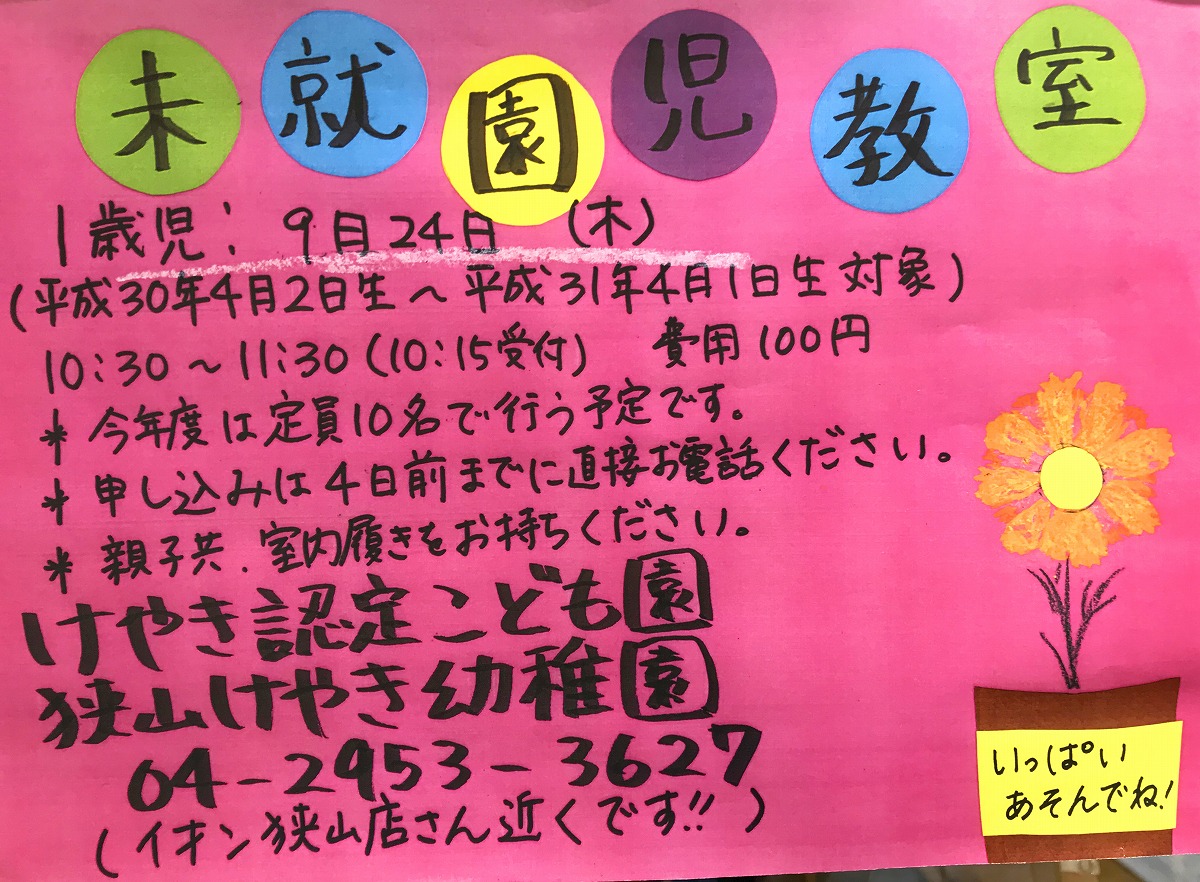 未就園児教室
1歳児: 9月24日 (木)
(平成30年4月2日生~平成31年4月1日生対象)
10:30~11:30(10:15受付) 費用100円
* 今年度は定員10名で行う予定です。
* 申し込みは4日前までに直接お電話ください。
* 親子共、室内履きをお持ちください。
けやき認定こども園
狭山けやき幼稚園
04-2953-3627
(イオン狭山店さん近くです!!)
いっぱい
あそんでね!